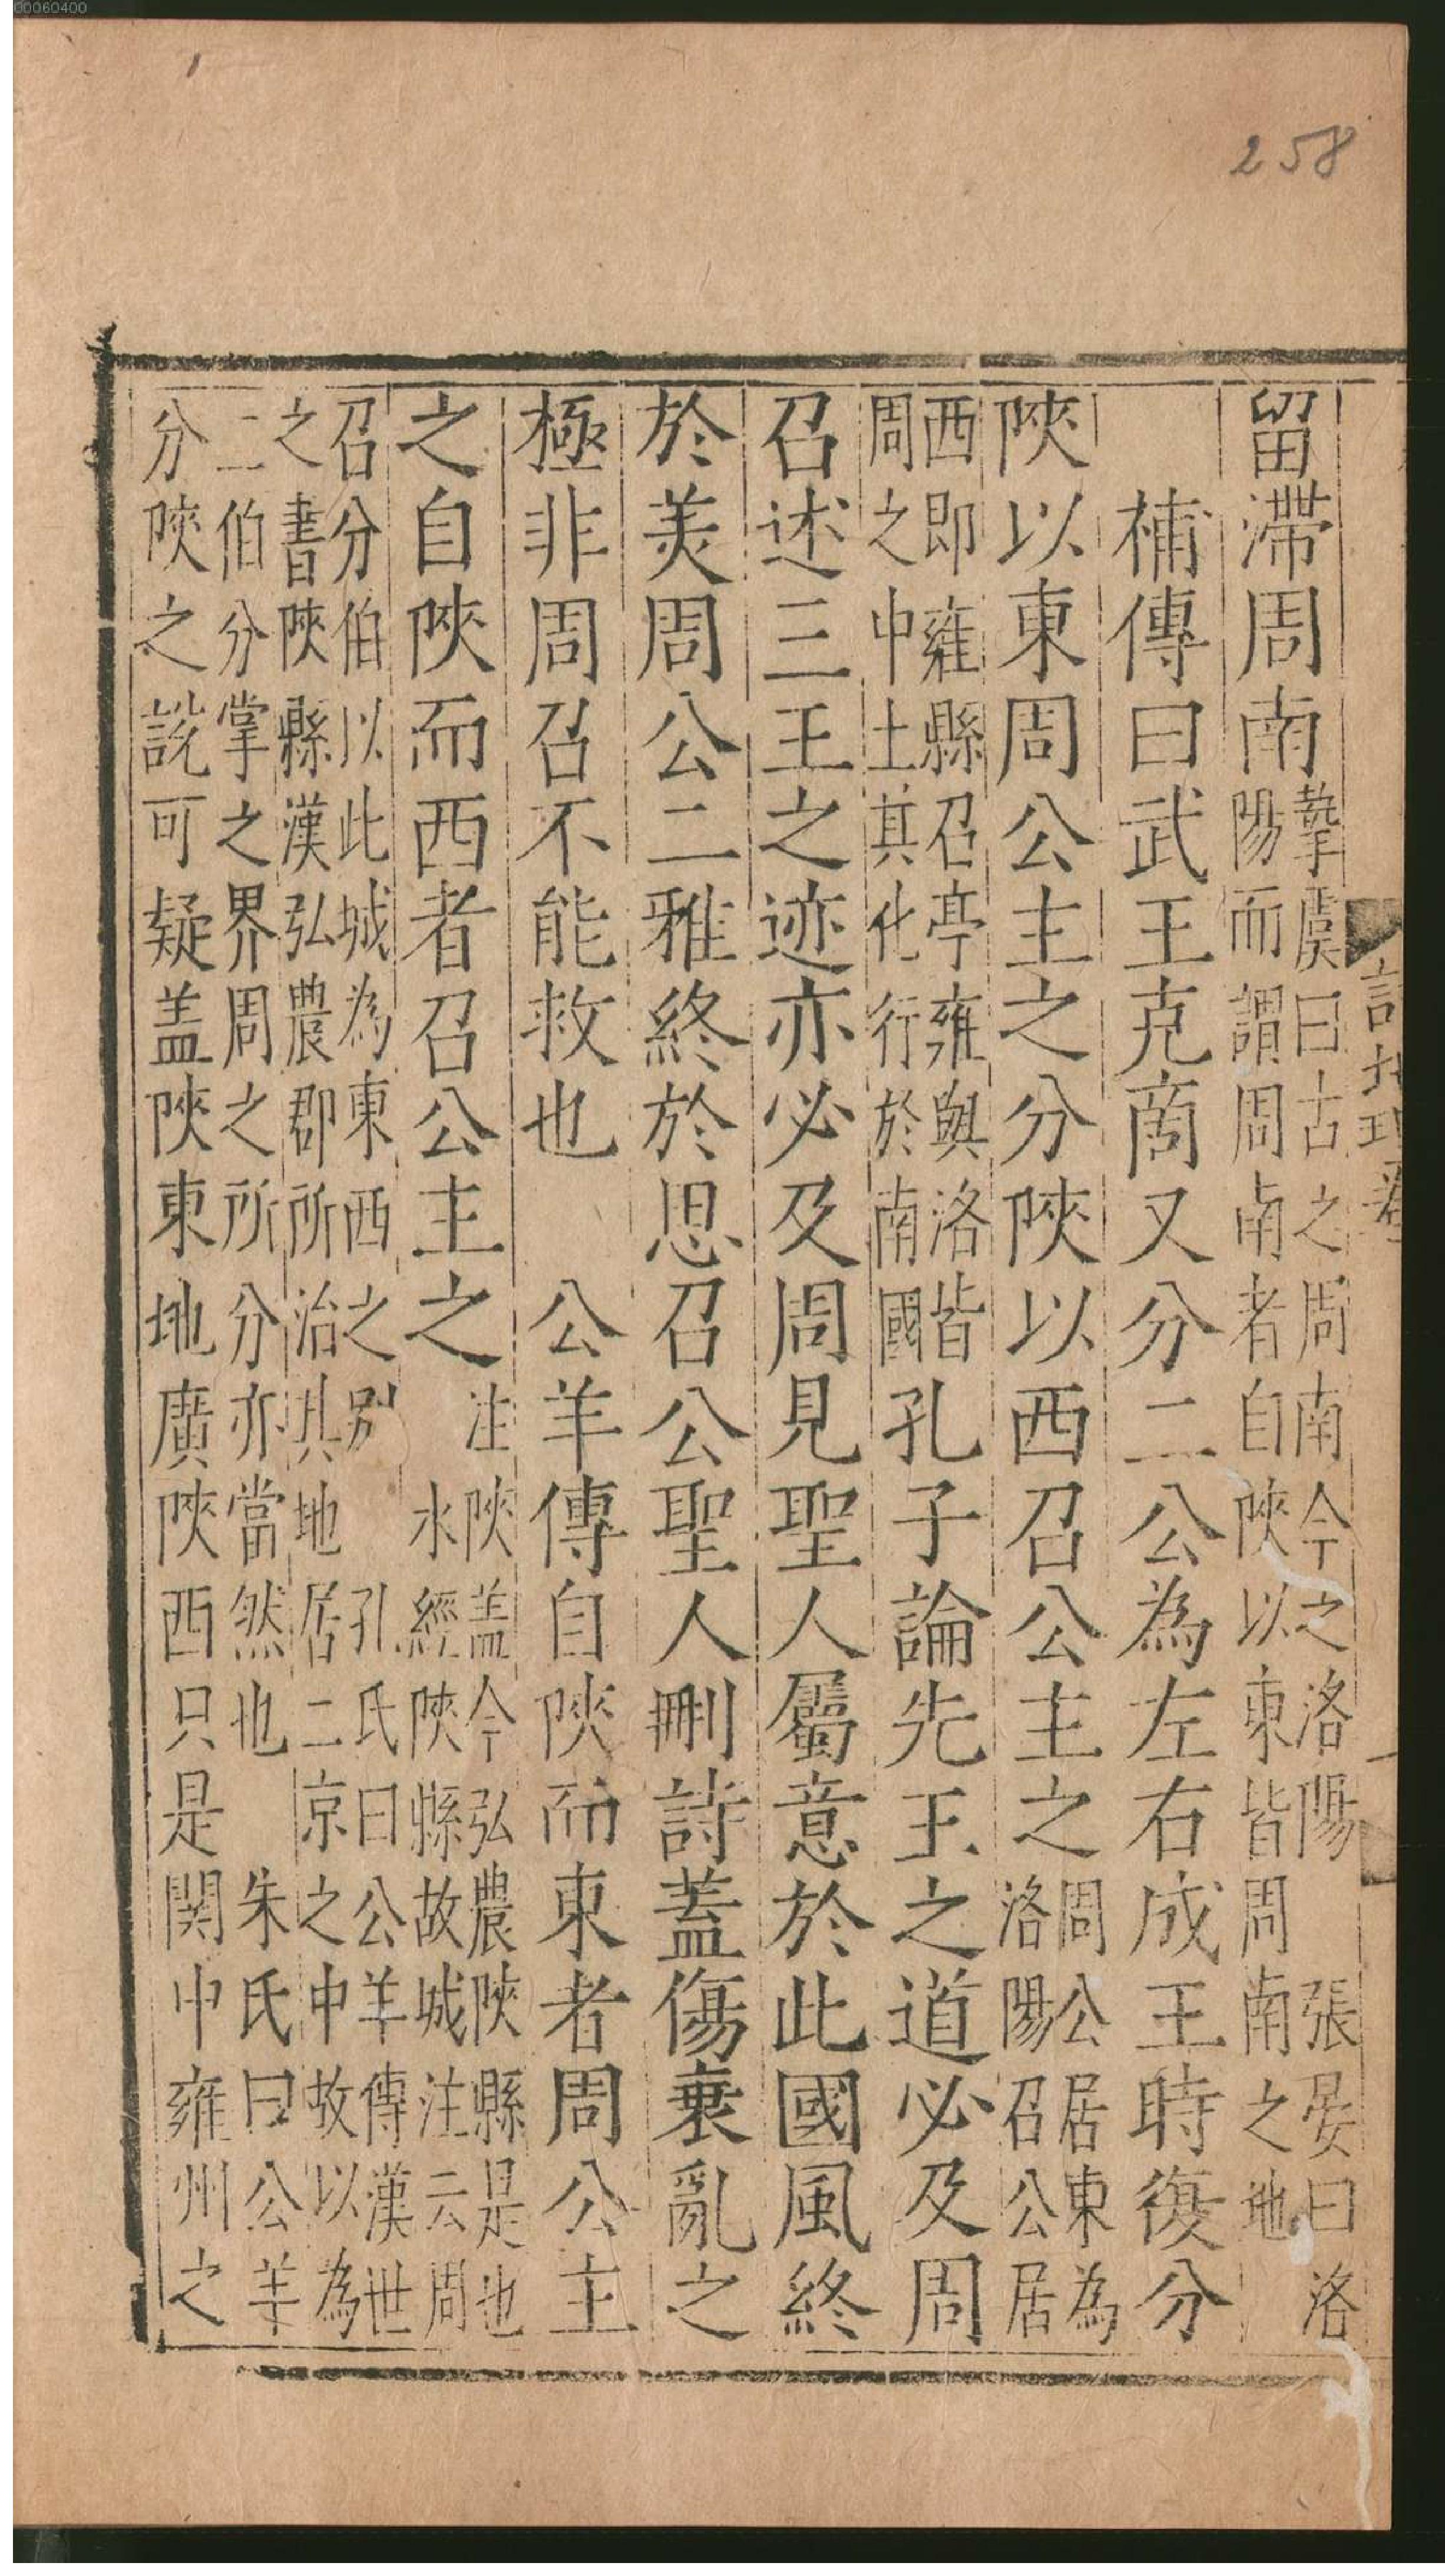 00060400
258
詩地理卷一
留滯周南
摯虞曰古之周南今之洛陽　張晏曰洛
陽而謂周南者自陜以東皆周南之地
補傳曰武王克商又分二公為左右成王時復分
陜以東周公主之分陜以西召公主之
周公居東為
洛陽召公居
西即雍縣召亭雍與洛皆
周之中土其化行於南國
孔子論先王之道必及周
召述三王之迹亦必及周見聖人屬意於此國風終
於美周公二雅終於思召公聖人刪詩蓋傷衰亂之
極非周召不能救也　公羊傳自陜而東者周公主
之自陜而西者召公主之
注陜盖今弘農陜縣是也
水經陜縣故城注云周
召分伯以此城為東西之別　孔氏曰公羊傳漢世
之書陜縣漢弘農郡所治其地居二京之中故以為
二伯分掌之界周之所分亦當然也　朱氏曰公羊
分陜之說可疑盖陜東地廣陜西只是関中雍州之